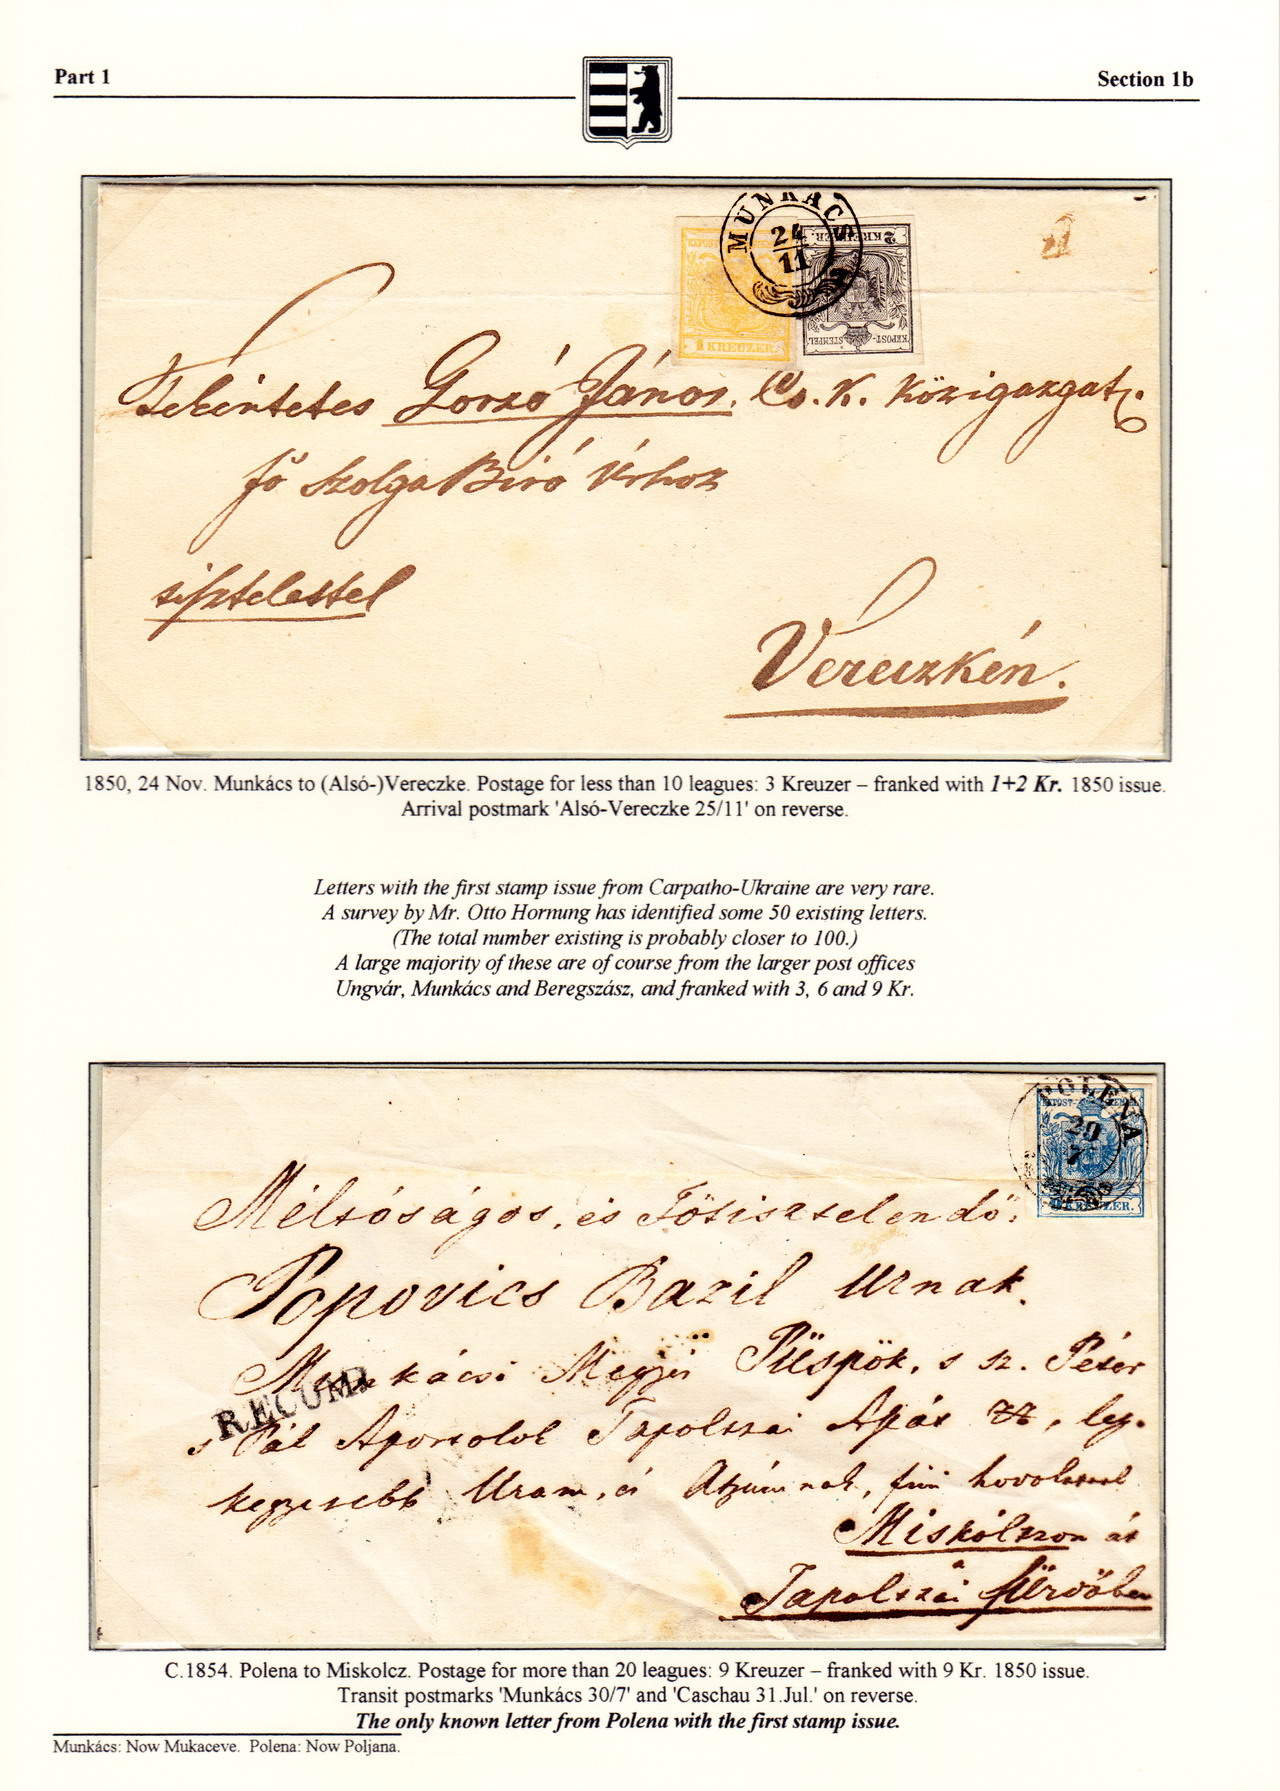 Part 1
Section 1b
MUNKÁCS
24
11
1 KREUZER
2 KREUZER.
KKPOST-STEMPEL
Tekéntetes Gorzó János. Cs. K. Közigazgat.
fő SzolgaBiró Úrhoz
tisztelettel
Vereczkén.
1850, 24 Nov. Munkács to (Alsó-)Vereczke. Postage for less than 10 leagues: 3 Kreuzer – franked with 1+2 Kr. 1850 issue.
Arrival postmark 'Alsó-Vereczke 25/11' on reverse.
Letters with the first stamp issue from Carpatho-Ukraine are very rare.
A survey by Mr. Otto Hornung has identified some 50 existing letters.
(The total number existing is probably closer to 100.)
A large majority of these are of course from the larger post offices
Ungvár, Munkács and Beregszász, and franked with 3, 6 and 9 Kr.
POLENA
7
KREUZER.
Méltóságos, és Fötisztelendö
Popovics Bazil Urnak.
Munkácsi Megyei Püspök, s sz. Péter
s Pál Apostolok Tapolszai Apát
kegyesebb Uram, és
RECOM
Miskólszon át
Tapolszai fürdöben
C.1854. Polena to Miskolcz. Postage for more than 20 leagues: 9 Kreuzer – franked with 9 Kr. 1850 issue.
Transit postmarks 'Munkács 30/7' and 'Caschau 31.Jul.' on reverse.
The only known letter from Polena with the first stamp issue.
Munkács: Now Mukaceve. Polena: Now Poljana.